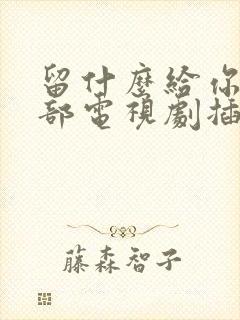 留什麼給你
部電視劇插
藤森智子